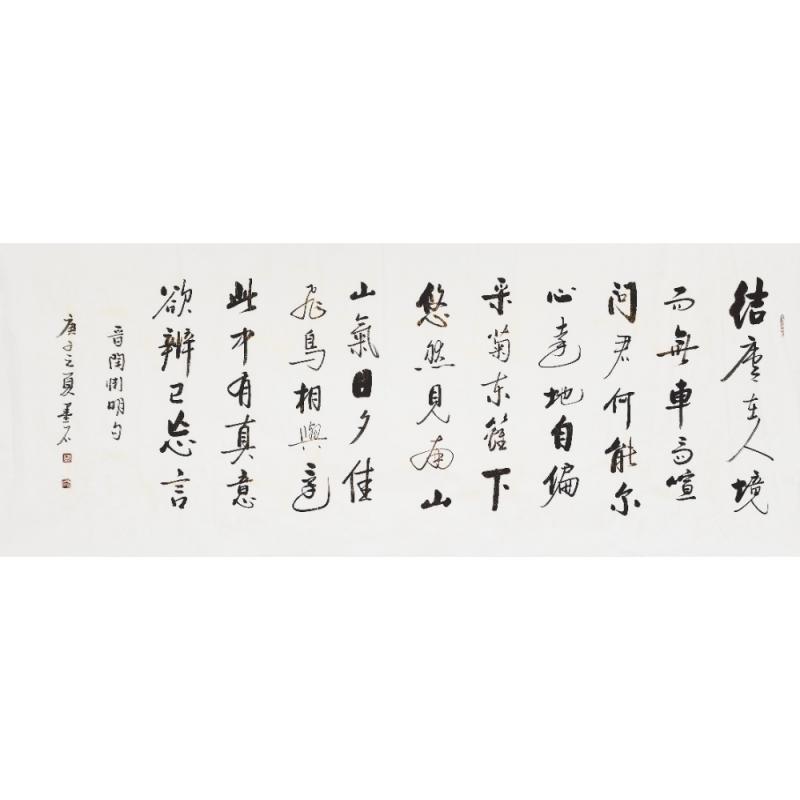 結廬在人境
而無車馬喧
问君何能尔
心遠地自偏
采菊东籬下
悠然見南山
山氣日夕佳
飛鳥相與還
此中有真意
欲辨已忘言
晋陶渊明句
庚子之夏墨石